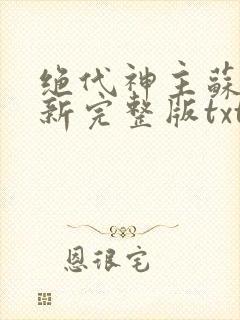 绝代神主蘇
新完整版txt
恩很宅